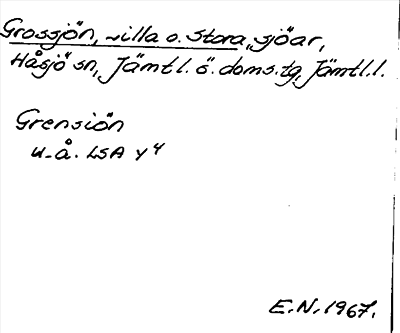 Grossjön, Lilla o. Stora, sjöar,
Håsjö sn, Jämtl. ö. doms.tg. Jämtl.l.
Grensiön
u. å. LSA Y4
E.N. 1967.